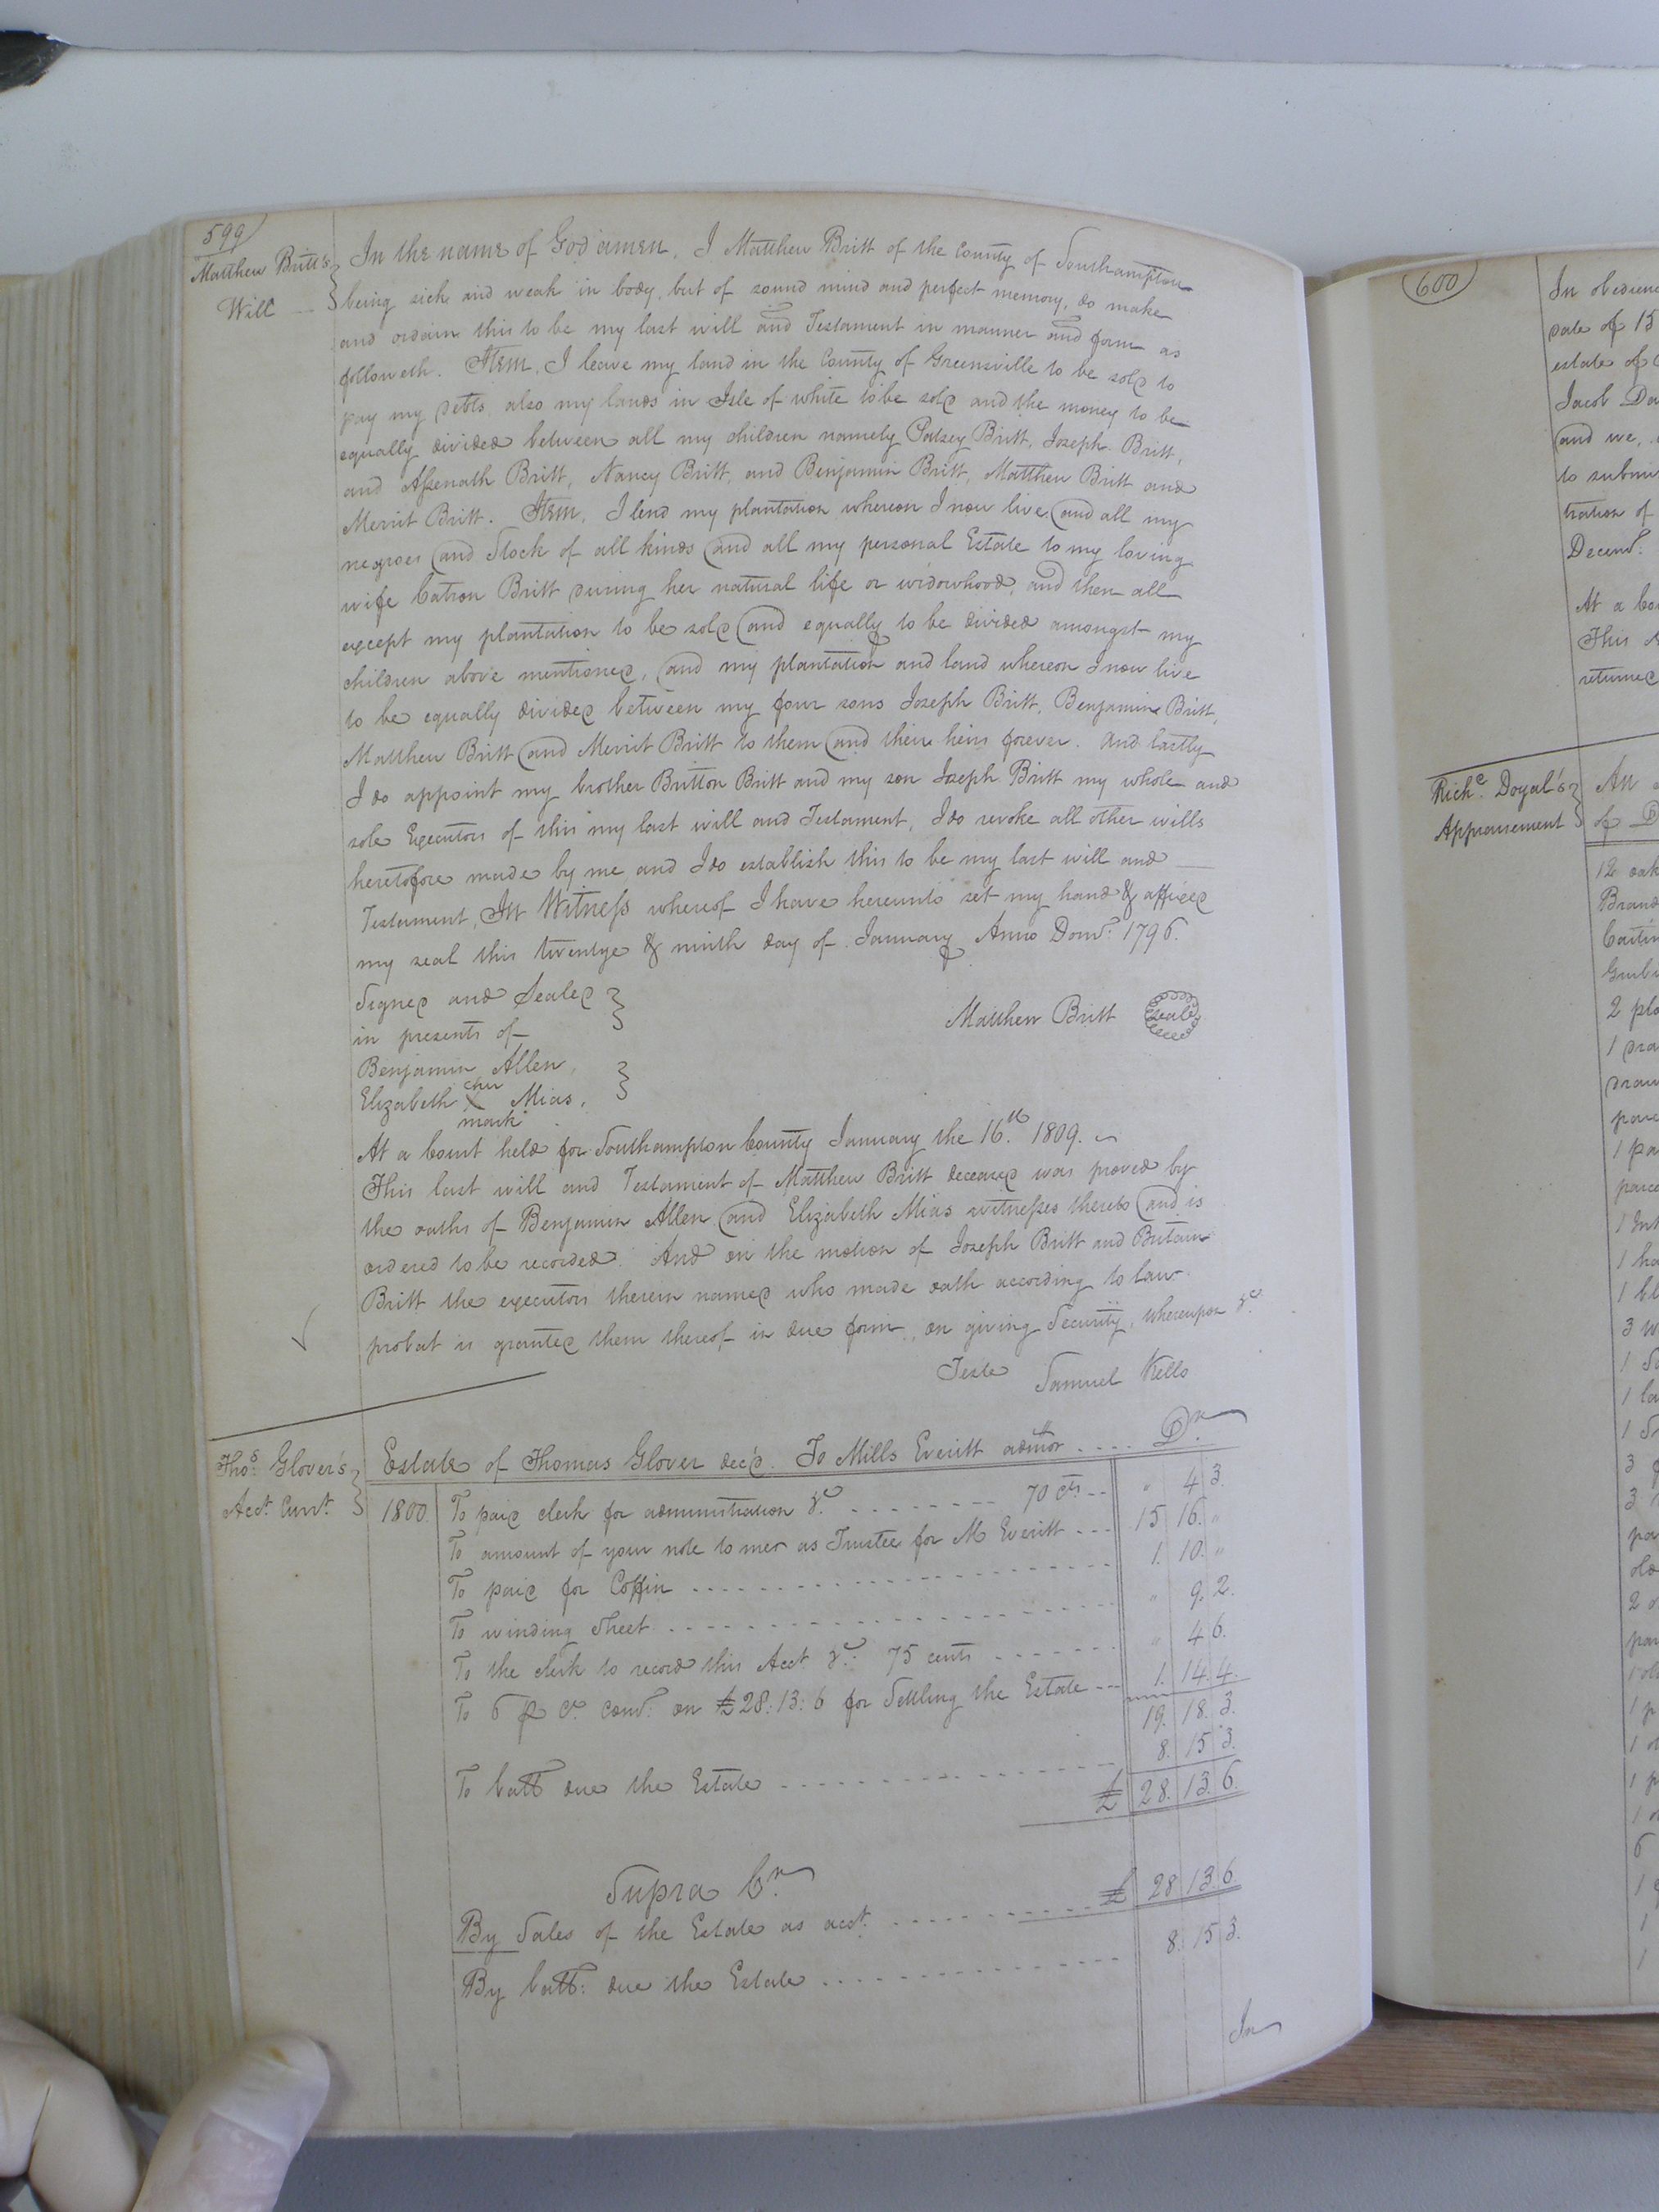 599
Matthew Britt's
Will
In the name of God amen, I Matthew Britt of the County of Southampton
being sick and weak in body, but of sound mind and perfect memory, do make
and ordain this to be my last will and Testament in manner and form as
followeth. Item, I leave my land in the County of Greensville to be sold to
pay my debts, also my lands in Isle of white to be sold and the money to be
equally divided between all my children namely Patsey Britt, Joseph Britt,
and Assenath Britt, Nancy Britt, and Benjamin Britt, Matthew Britt and
Merrit Britt. Item, I lend my plantation whereon I now live and all my
negroes and Stock of all kinds and all my personal Estate to my loving
wife Catron Britt during her natural life or widowhood, and then all
except my plantation to be sold and equally to be divided amongst my
children above mentioned, and my plantation and land whereon I now live
to be equally divided between my four sons Joseph Britt, Benjamin Britt,
Matthew Britt and Merrit Britt to them and their heirs forever. And lastly
I do appoint my brother Britton Britt and my son Joseph Britt my whole and
sole Executors of this my last will and Testament, I do revoke all other wills
heretofore made by me and I do establish this to be my last will and
Testament, In Witness whereof I have hereunto set my hand & affixed
my seal this twentye & ninth day of January Anno Dom: 1796.
Signed and Sealed
in presents of
Matthew Britt Seal
Benjamin Allen,
Elizabeth her X mark Mias,
At a Court held for Southampton County January the 16.th 1809.
This last will and Testament of Matthew Britt deceased was proved by
the oaths of Benjamin Allen and Elizabeth Mias witnesses thereto and is
ordered to be recorded. And on the motion of Joseph Britt and Britain
Britt the executors therein named who made oath according to law
probat is granted them thereof in due form, on giving Security, whereupon &c.
Teste Samuel Kello
Thos. Glover's
Acct. Curt.
Estate of Thomas Glover dec'd. To Mills Everitt admor .... Dr.
1800. To paid clerk for administration &c. 70 cts " 4 3.
To amount of your note to me as Trustee for M Everitt 15 16. "
To paid for Coffin 1. 10. "
To winding Sheet " 9. 2.
To the clerk to record this Acct. &c. 75 cents " 4 6.
To 6 p Ct. Com: on £28:13:6 for Settling the Estate 1. 14. 4.
19. 18. 3.
To ball due the Estate 8. 15 3.
£ 28. 13. 6.
Supra Cr.
By Sales of the Estate as acct. £ 28 13. 6.
By ball: due the Estate 8. 15 3.
In
600
In obedienc
date of 15
estate of
Jacob Da
and we,
to submi
tration of
Decemr.
At a Cou
This
returned
Richd. Doyal's
Appraisement
An
of
12 oak
Brand
2 plo